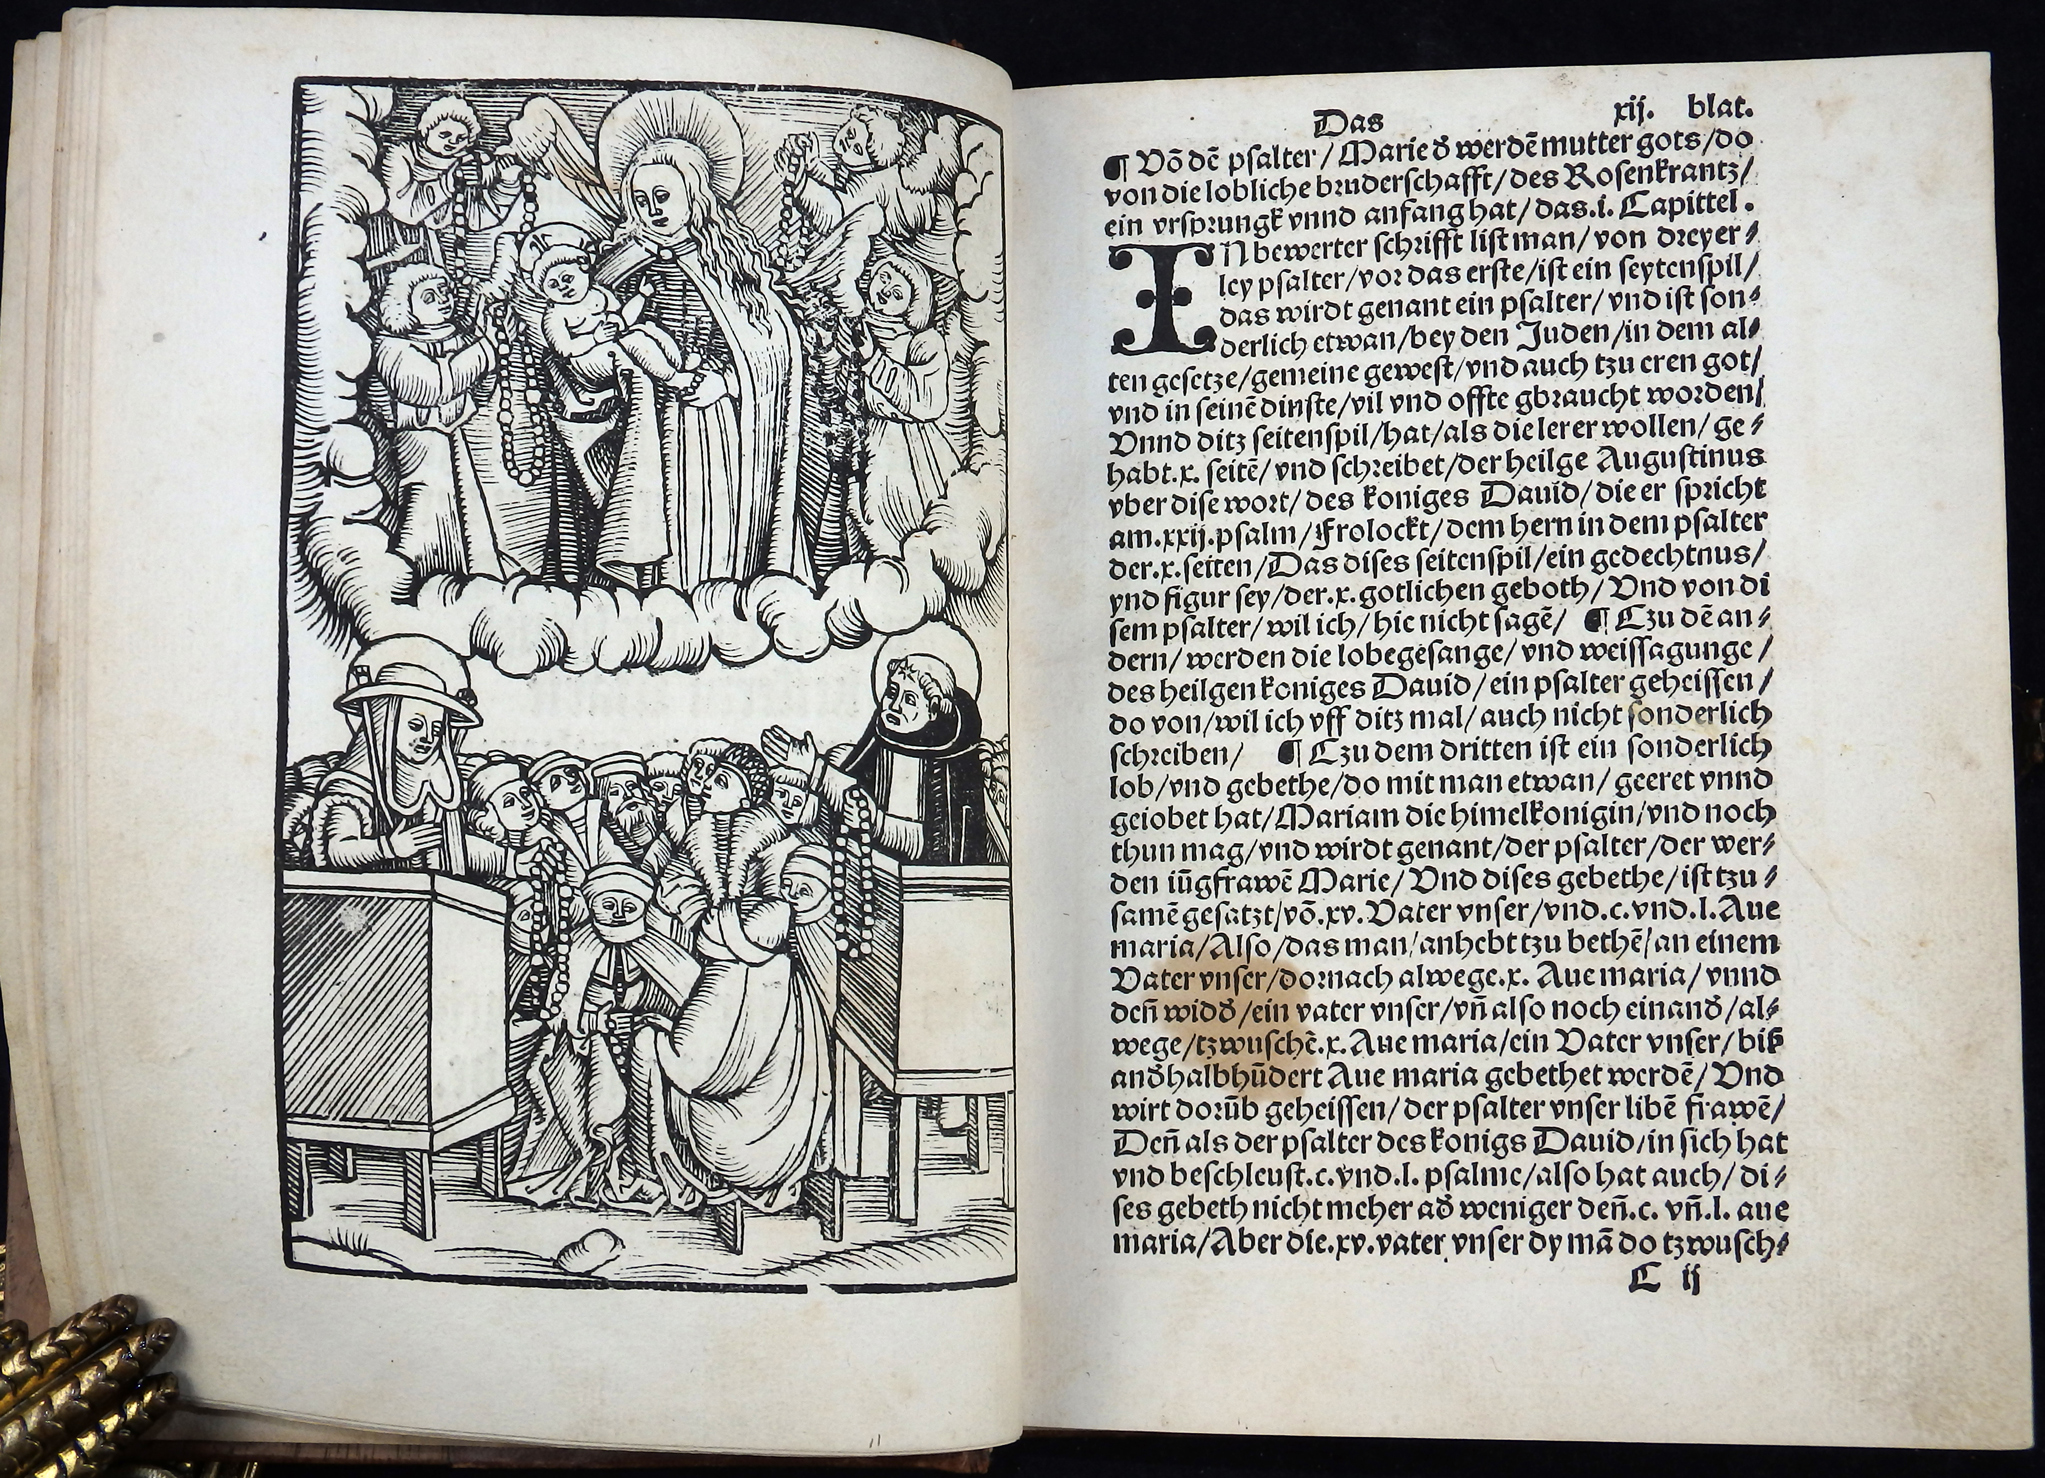 Das xij. blat.
¶ Vō dē psalter/Marie d̕ werdē mutter gots/do
von die lobliche bruderschafft/des Rosenkrantz/
ein vrsprungk vnnd anfang hat/das.i. Capittel.
IN bewerter schrifft list man/von dreyer⸗
ley psalter/vor das erste/ist ein seytenspil/
das wirdt genant ein psalter/vnd ist son⸗
derlich etwan/bey den Juden/in dem al⸗
ten gesetze/gemeine gewest/vnd auch tzu eren got/
vnd in seinē dinste/vil vnd offte gbraucht worden/
Vnnd ditz seitenspil/hat/als die lerer wollen/ge⸗
habt.x. seitē/vnd schreibet/der heilge Augustinus
vber dise wort/des koniges Dauid/die er spricht
am.xxij.psalm/Frolockt/dem hern in dem psalter
der.x.seiten/Das dises seitenspil/ein gedechtnus/
vnd figur sey/der.x.gotlichen geboth/Vnd von di
sem psalter/wil ich/hie nicht sagē/ ¶ Czu dē an⸗
dern/werden die lobegesange/vnd weissagunge/
des heilgen koniges Dauid/ein psalter geheissen/
do von/wil ich vff ditz mal/auch nicht sonderlich
schreiben/ ¶ Czu dem dritten ist ein sonderlich
lob/vnd gebethe/do mit man etwan/geeret vnnd
gelobet hat/Mariam die himelkonigin/vnd noch
thun mag/vnd wirdt genant/der psalter/der wer⸗
den iūgfrawē Marie/Vnd dises gebethe/ist tzu⸗
samē gesatzt/vō.xv. Vater vnser/vnd.c.vnd.l.Aue
maria/Also/das man/anhebt tzu bethē/an einem
Vater vnser/dornach alwege.x. Aue maria/vnnd
den̄ widd̕/ein vater vnser/vn̄ also noch einand̕/al⸗
wege/tzwuschē.x.Aue maria/ein Vater vnser/biß
and̕halbhūdert Aue maria gebethet werdē/Vnd
wirt dorūb geheissen/der psalter vnser libē frawē/
Den̄ als der psalter des konigs Dauid/in sich hat
vnd beschleust.c.vnd.l. psalme/also hat auch/di⸗
ses gebeth nicht meher ad̕ weniger den̄.c. vn̄.l. aue
maria/Aber die.xv.vater vnser dy mā do tzwusch⸗
C ij